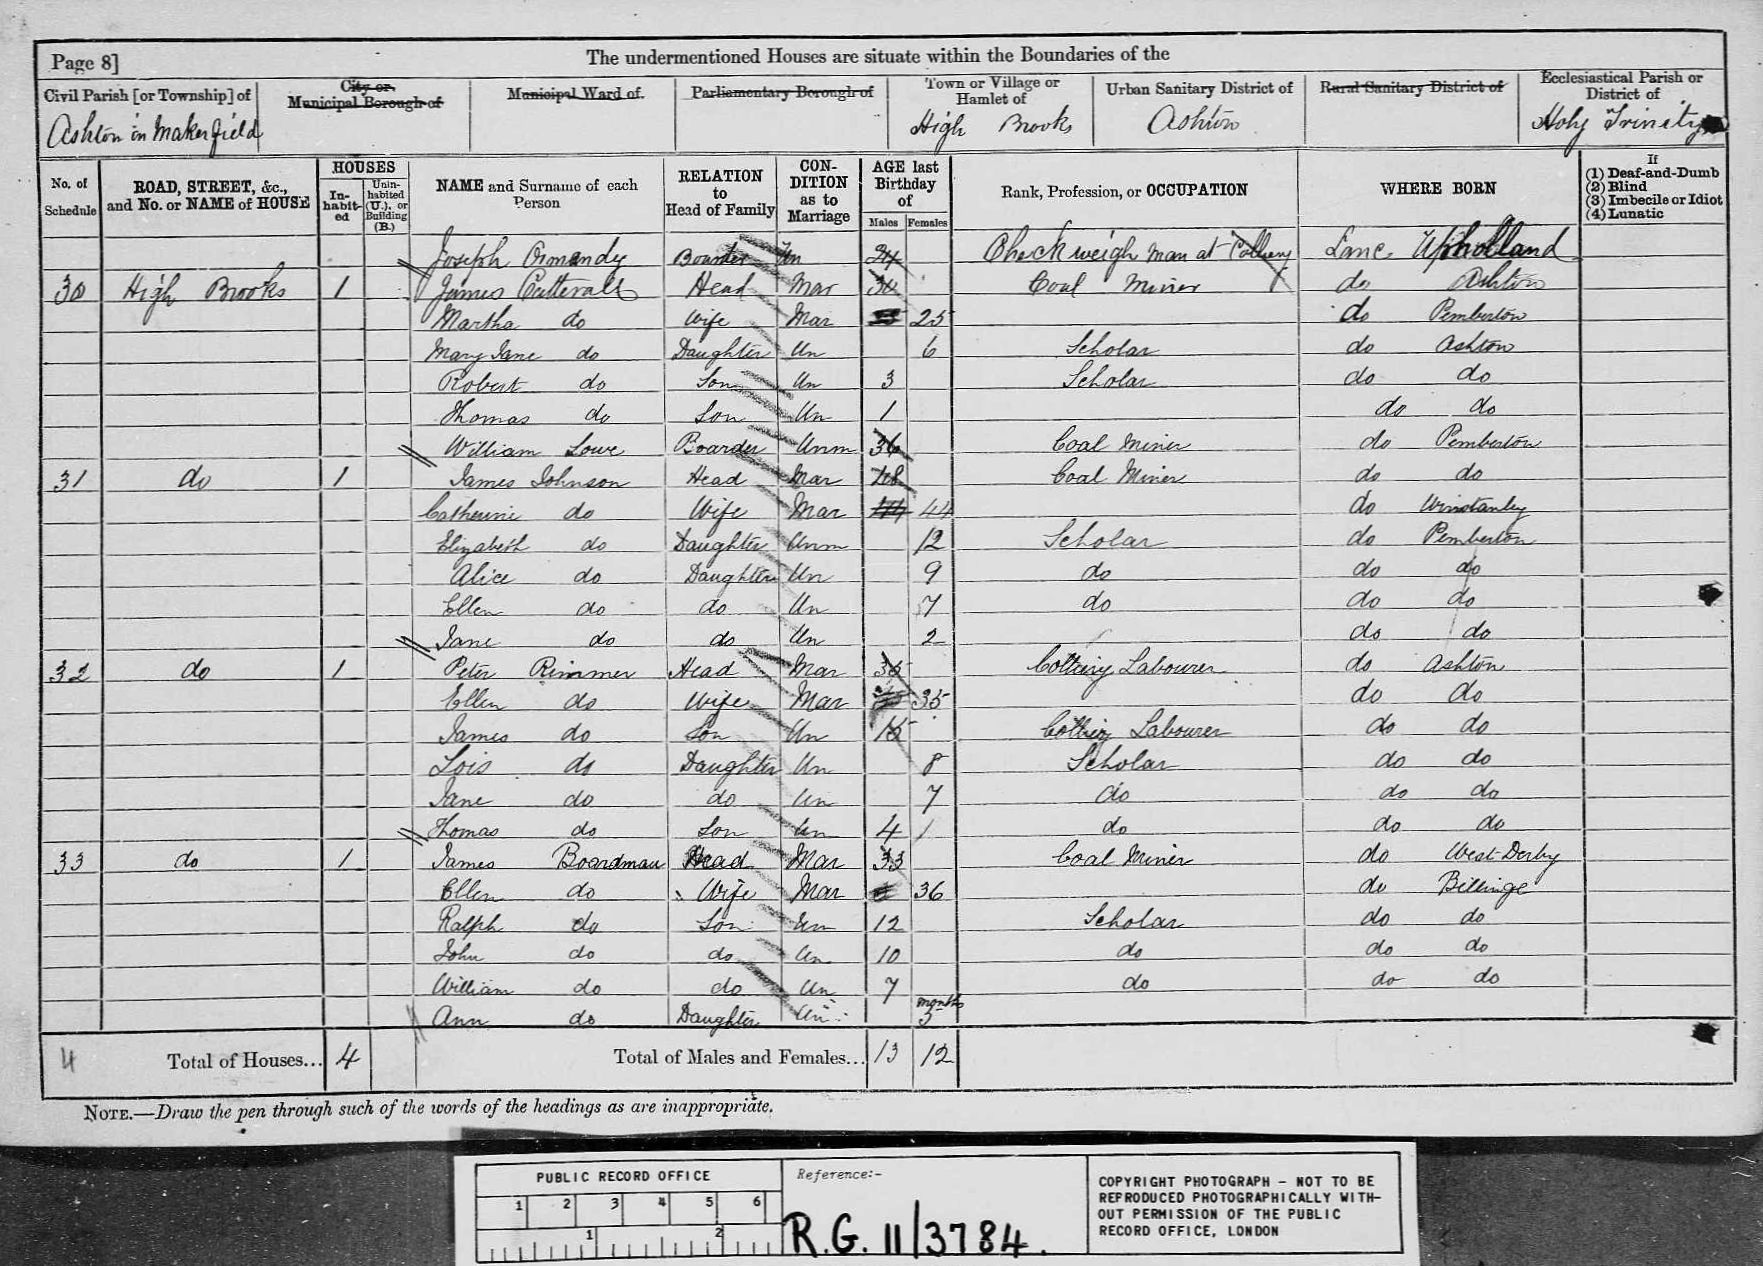 Page 8]
The undermentioned Houses are situate within the Boundaries of the
Civil Parish [or Township] of
Ashton in Makerfield
City or
Municipal Borough of
Municipal Ward of
Parliamentary Borough of
Town or Village or
Hamlet of
High Brooks
Urban Sanitary District of
Ashton
Rural Sanitary District of
Ecclesiastical Parish or
District of
Holy Trinity
No. of
Schedule
ROAD, STREET, &c.,
and No. or NAME of HOUSE
HOUSES
In-
habit-
ed
Unin-
habited
(U.), or
Building
(B.)
NAME and Surname of each
Person
RELATION
to
Head of Family
CON-
DITION
as to
Marriage
AGE last
Birthday
of
Males Females
Rank, Profession, or OCCUPATION
WHERE BORN
If
(1) Deaf-and-Dumb
(2) Blind
(3) Imbecile or Idiot
(4) Lunatic
Joseph Ormandy Boarder Un 24 Check weigh man at Colliery Lanc. Upholland
30 High Brooks 1 James Catterall Head Mar 30 Coal Miner do Ashton
Martha do Wife Mar 25 do Pemberton
Mary Jane do Daughter Un 6 Scholar do Ashton
Robert do Son Un 3 Scholar do do
Thomas do Son Un 1 do do
William Lowe Boarder Unm 36 Coal Miner do Pemberton
31 do 1 James Johnson Head Mar 48 Coal Miner do do
Catherine do Wife Mar 44 do Winstanley
Elizabeth do Daughter Unm 12 Scholar do Pemberton
Alice do Daughter Un 9 do do do
Ellen do do Un 7 do do do
Jane do do Un 2 do do
32 do 1 Peter Rimmer Head Mar 35 Colliery Labourer do Ashton
Ellen do Wife Mar 35 do do
James do Son Un 15 Colliery Labourer do do
Lois do Daughter Un 8 Scholar do do
Jane do do Un 7 do do do
Thomas do Son Un 4 do do do
33 do 1 James Boardman Head Mar 33 Coal Miner do West Derby
Ellen do Wife Mar 36 do Billinge
Ralph do Son Un 12 Scholar do do
John do do Un 10 do do do
William do do Un 7 do do do
Ann do Daughter Un months 3
4 Total of Houses... 4 Total of Males and Females... 13 12
NOTE.—Draw the pen through such of the words of the headings as are inappropriate.
PUBLIC RECORD OFFICE
1 2 3 4 5 6
1 2
Reference:-
R.G. 11/3784.
COPYRIGHT PHOTOGRAPH - NOT TO BE
REPRODUCED PHOTOGRAPHICALLY WITH-
OUT PERMISSION OF THE PUBLIC
RECORD OFFICE, LONDON